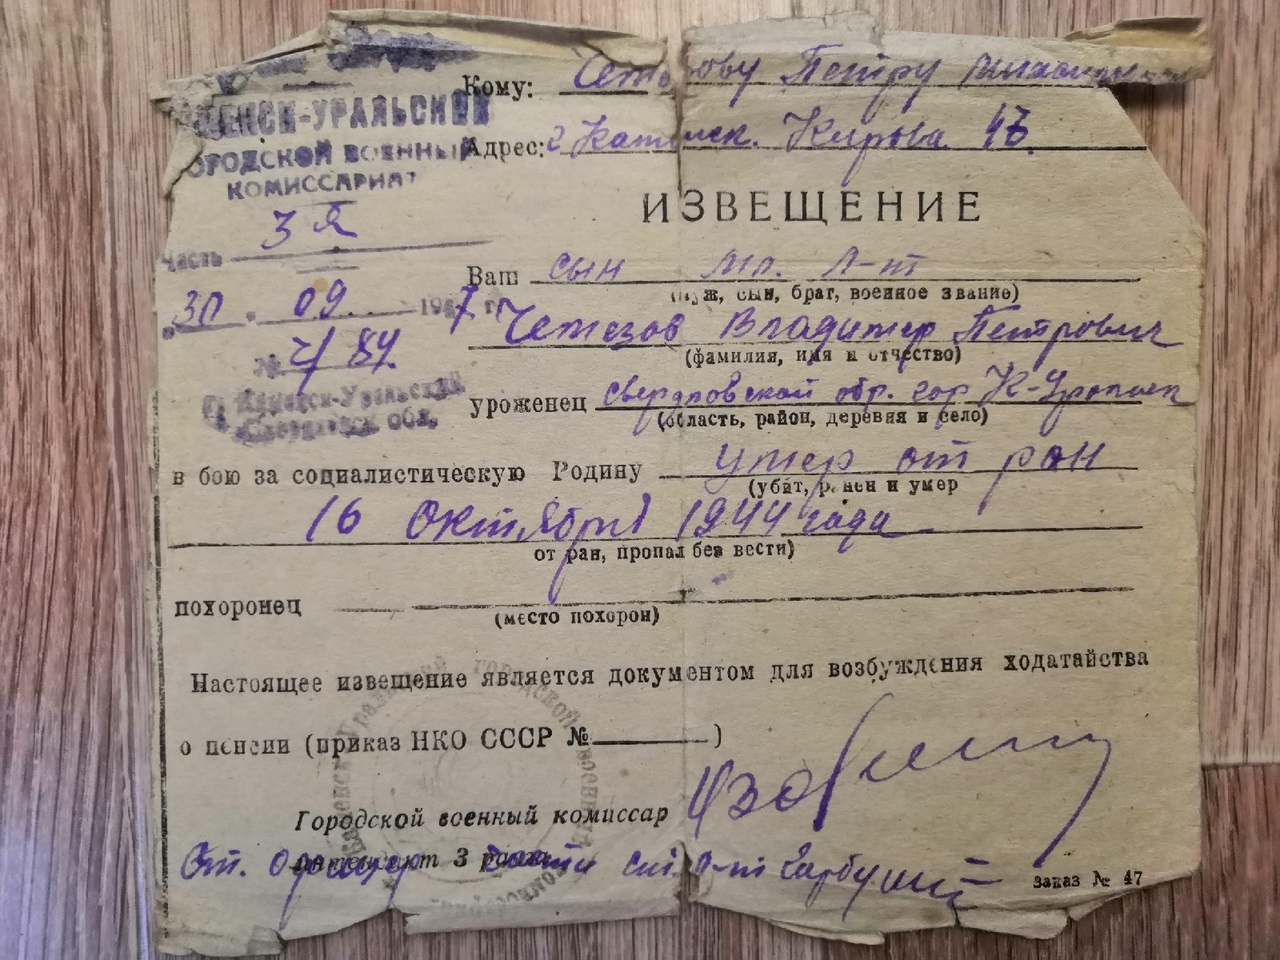 Кому: Петру
КАМЕНСК-УРАЛЬСКИЙ
ГОРОДСКОЙ ВОЕННЫЙ
КОМИССАРИАТ
Адрес: г Каменск. Кирова 47
ИЗВЕЩЕНИЕ
Часть 3я
30 . 09 1947 г.
№ 4/84
г. Каменск-Уральский
Свердловск обл.
Ваш сын мл. л-т
(муж, сын, брат, военное звание)
Чемезов Владимир Петрович
(фамилия, имя и отчество)
уроженец Свердловской обл. гор К-Уральск
(область, район, деревня и село)
в бою за социалистическую Родину умер от ран
(убит, ранен и умер
16 Октября 1944 года
от ран, пропал без вести)
похоронец
(место похорон)
Настоящее извещение является документом для возбуждения ходатайства
о пенсии (приказ НКО СССР № )
Городской военный комиссар
3
заказ № 47